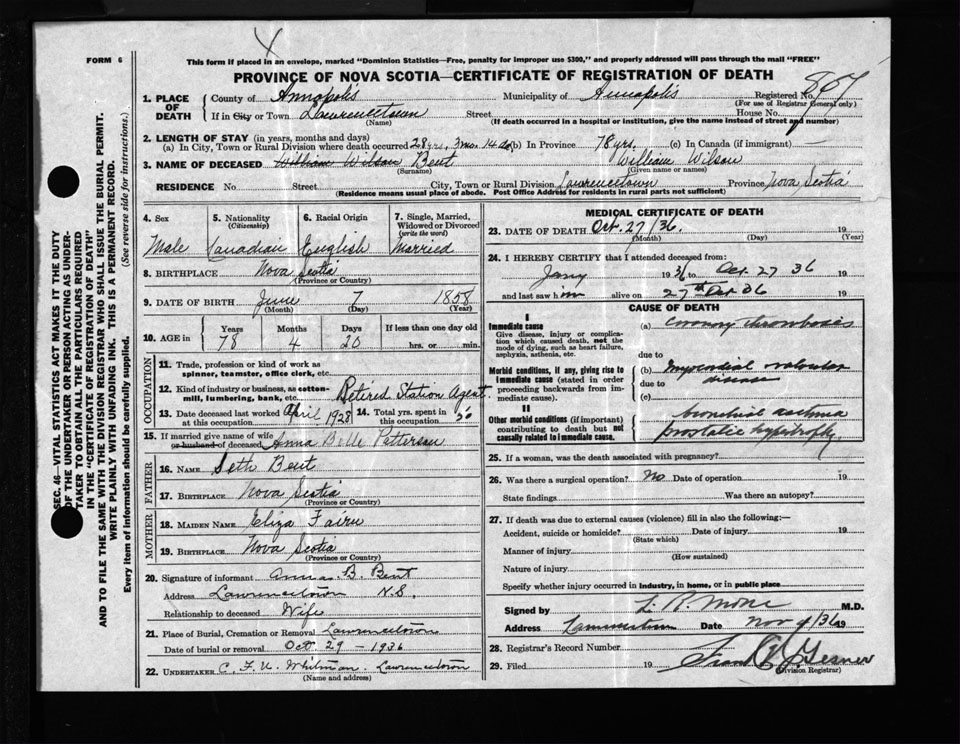 FORM 6
X
This form if placed in an envelope, marked "Dominion Statistics—Free, penalty for improper use $300," and properly addressed will pass through the mail "FREE"
PROVINCE OF NOVA SCOTIA—CERTIFICATE OF REGISTRATION OF DEATH
1. PLACE OF DEATH County of Annapolis Municipality of Annapolis Registered No. 867
(For use of Registrar General only)
If in City or Town Lawrencetown Street House No.
(Name) (If death occurred in a hospital or institution, give the name instead of street and number)
2. LENGTH OF STAY (in years, months and days)
(a) In City, Town or Rural Division where death occurred 28 yrs, 3 mos. 14 ds (b) In Province 78 yrs. (c) In Canada (if immigrant) —
3. NAME OF DECEASED William Wilson Bent William Wilson
(Surname) (Given name or names)
RESIDENCE No Street City, Town or Rural Division Lawrencetown Province Nova Scotia
(Residence means usual place of abode. Post Office Address for residents in rural parts not sufficient)
SEC. 46—VITAL STATISTICS ACT MAKES IT THE DUTY
OF THE UNDERTAKER OR PERSON ACTING AS UNDER-
TAKER TO OBTAIN ALL THE PARTICULARS REQUIRED
IN THE "CERTIFICATE OF REGISTRATION OF DEATH"
AND TO FILE THE SAME WITH THE DIVISION REGISTRAR WHO SHALL ISSUE THE BURIAL PERMIT.
WRITE PLAINLY WITH UNFADING INK. THIS IS A PERMANENT RECORD.
Every item of information should be carefully supplied. (See reverse side for instructions.)
4. Sex 5. Nationality (Citizenship) 6. Racial Origin 7. Single, Married, Widowed or Divorced (write the word)
Male Canadian English Married
8. BIRTHPLACE Nova Scotia
(Province or Country)
9. DATE OF BIRTH June 7 1858
(Month) (Day) (Year)
10. AGE in Years Months Days If less than one day old
78 4 20 hrs. or min.
OCCUPATION
11. Trade, profession or kind of work as
spinner, teamster, office clerk, etc.
12. Kind of industry or business, as cotton-
mill, lumbering, bank, etc. Retired Station Agent
13. Date deceased last worked at this occupation April 1928 14. Total yrs. spent in this occupation 50
15. If married give name of wife or husband of deceased Anna Belle Patterson
FATHER
16. NAME Seth Bent
17. BIRTHPLACE Nova Scotia
(Province or Country)
MOTHER
18. MAIDEN NAME Eliza
19. BIRTHPLACE Nova Scotia
(Province or Country)
20. Signature of informant Anna B. Bent
Address Lawrencetown N.S.
Relationship to deceased Wife
21. Place of Burial, Cremation or Removal Lawrencetown
Date of burial or removal Oct. 29 - 1936
22. UNDERTAKER Whitman Lawrencetown
(Name and address)
MEDICAL CERTIFICATE OF DEATH
23. DATE OF DEATH Oct. 27/36. 19
(Month) (Day) (Year)
24. I HEREBY CERTIFY that I attended deceased from:
Jany 1936 to Oct. 27 36 19
and last saw him alive on 27th Oct 36 19
CAUSE OF DEATH
I
Immediate cause
Give disease, injury or complica-
tion which caused death, not the
mode of dying, such as heart failure,
asphyxia, asthenia, etc.
(a) Coronary thrombosis
due to
Morbid conditions, if any, giving rise to
immediate cause (stated in order
proceeding backwards from im-
mediate cause).
(b) Myocardial valvular
due to disease
(c)
II
Other morbid conditions (if important)
contributing to death but not
causally related to immediate cause.
bronchial asthma
prostatic hypertrophy
25. If a woman, was the death associated with pregnancy?
26. Was there a surgical operation? No Date of operation 19
State findings Was there an autopsy?
27. If death was due to external causes (violence) fill in also the following:—
Accident, suicide or homicide? Date of injury 19
(State which)
Manner of injury
(How sustained)
Nature of injury
Specify whether injury occurred in industry, in home, or in public place
Signed by L. R. Morse M.D.
Address Lawrencetown Date Nov 4/36 19
28. Registrar's Record Number
29. Filed 19 Frank Gesner
(Division Registrar)